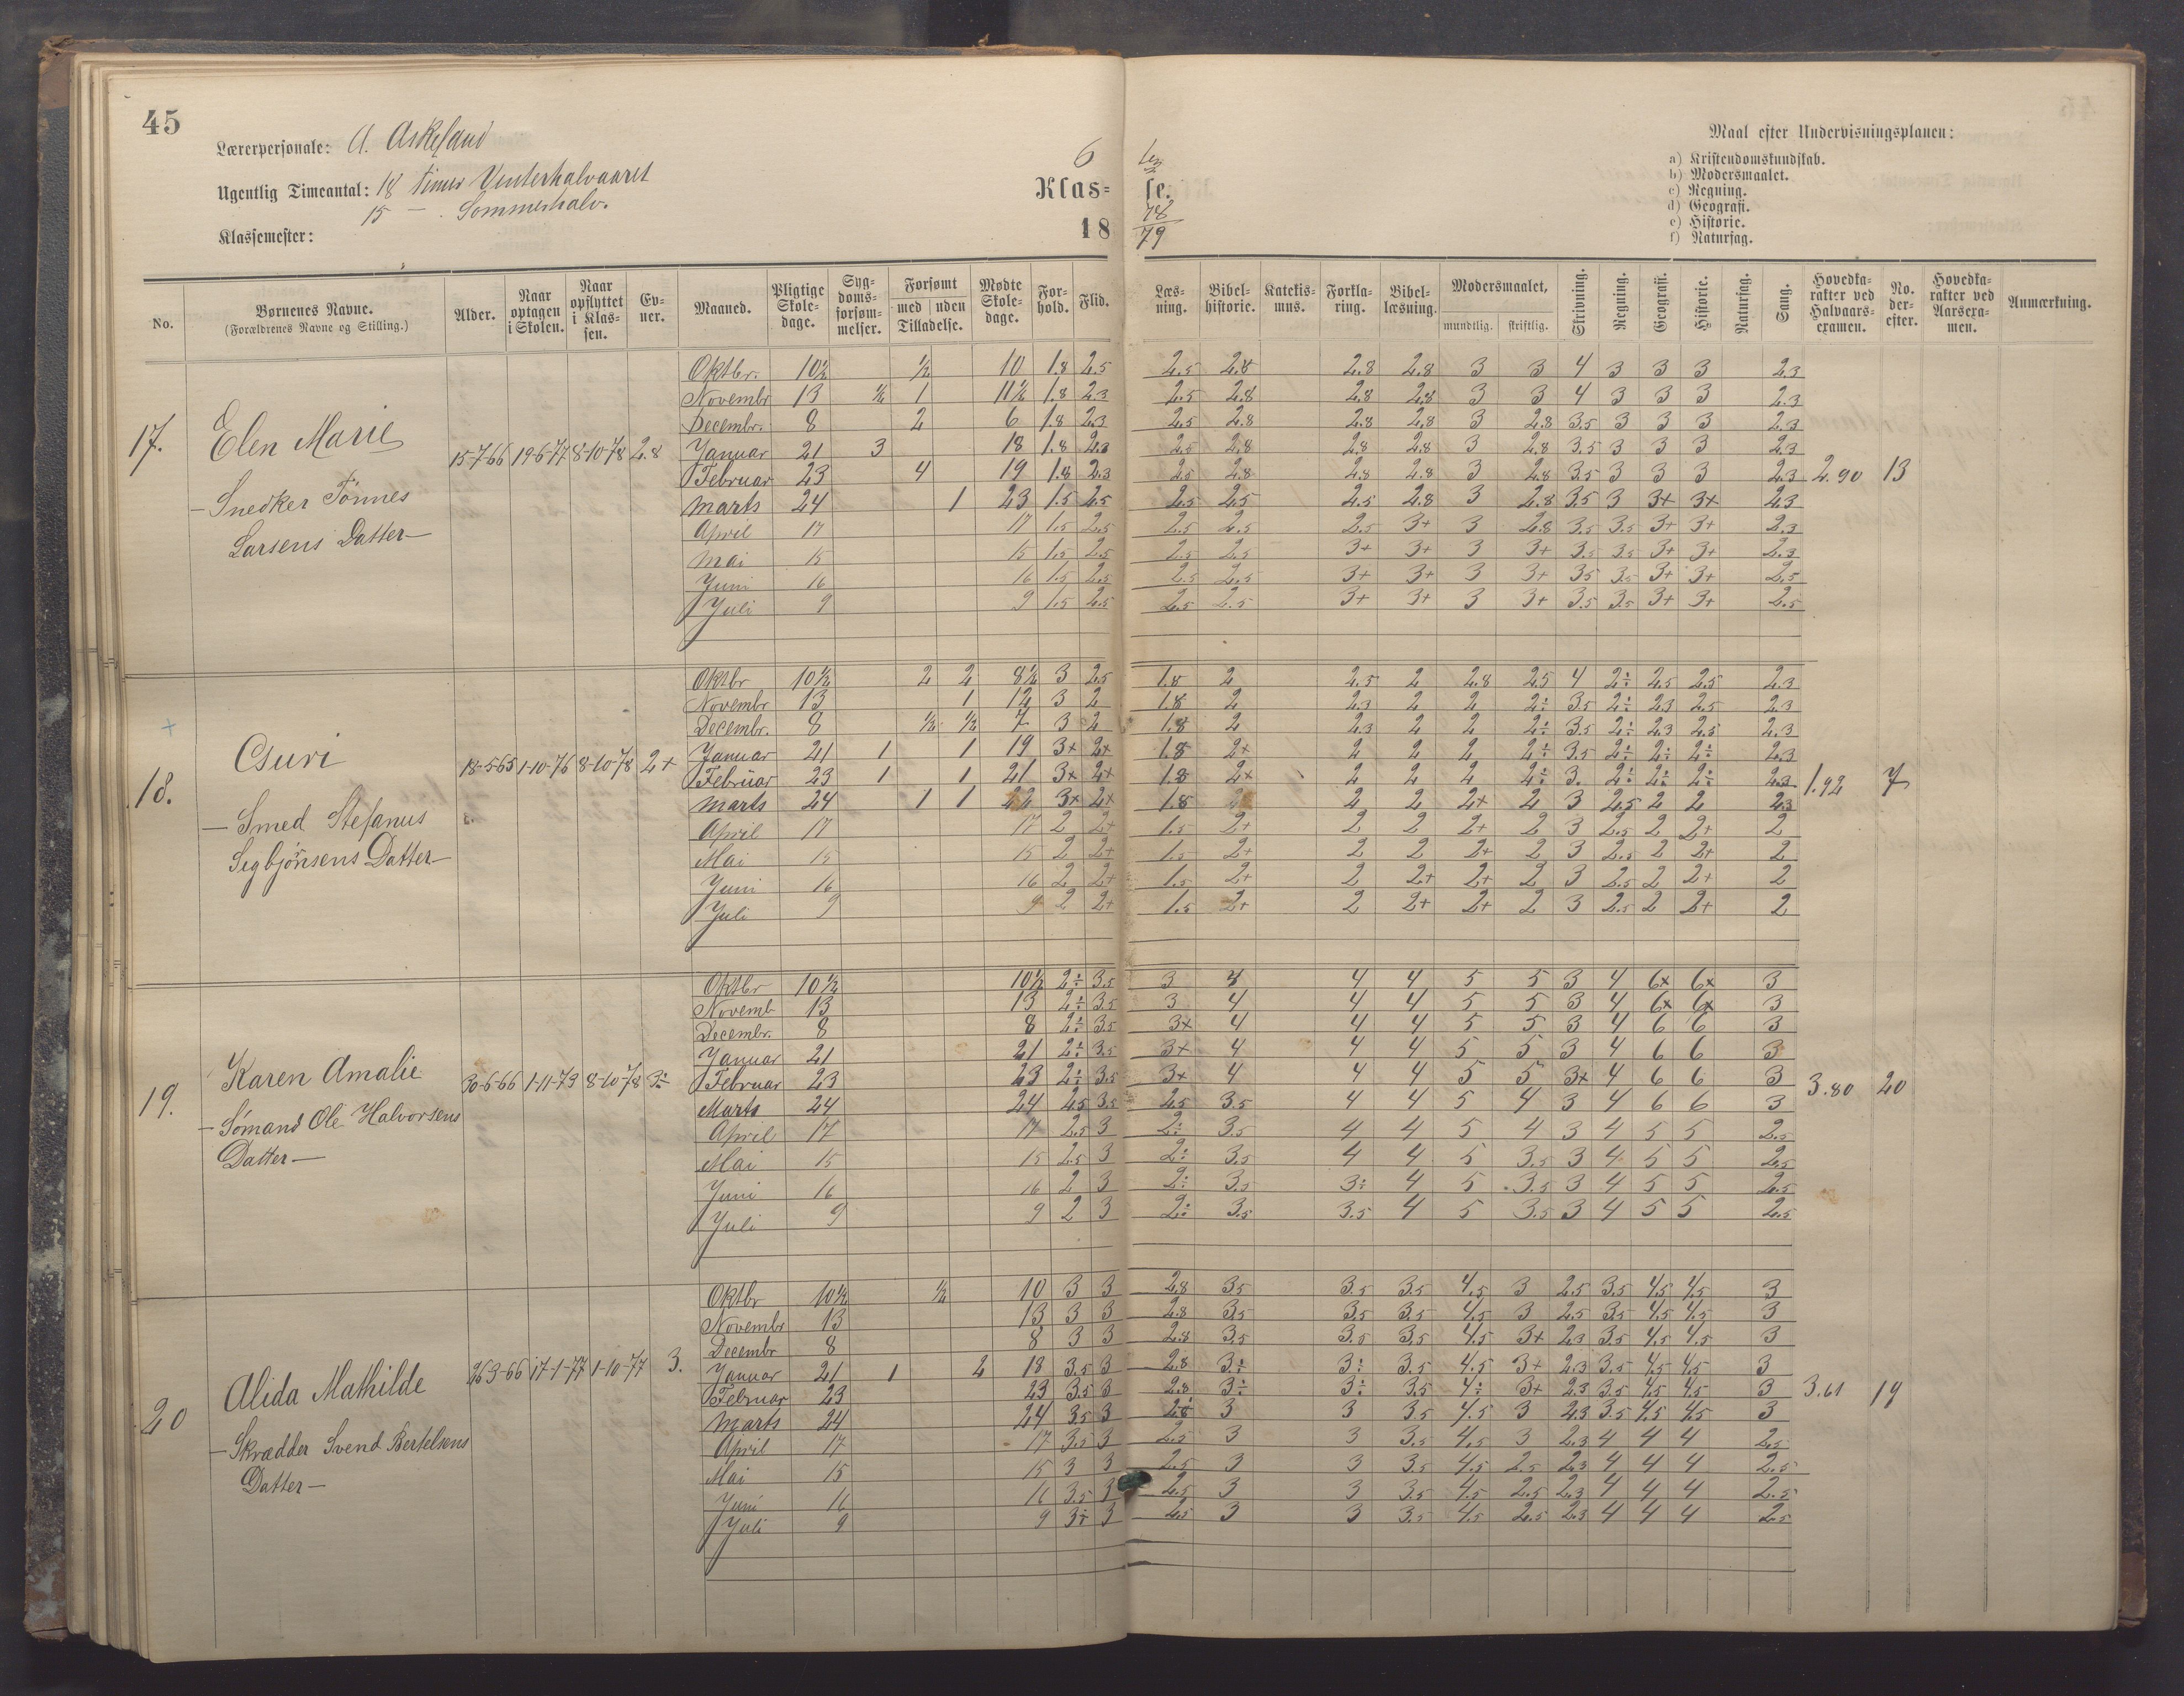 45
Lærerpersonale: A. Askeland
Ugentlig Timeantal: 18 timer Vinterhalvaaret
15 — Sommerhalv.
Klassemester:
6
Klas=se.
18 78/79
Maal efter Undervisningsplanen:
a) Kristendomskundskab.
b) Modersmaalet.
c) Regning.
d) Geografi.
e) Historie.
f) Naturfag.
No. | Børnenes Navne. (Forældrenes Navne og Stilling.) | Alder. | Naar optagen i Skolen. | Naar opflyttet i Klassen. | Evner. | Maaned. | Pligtige Skoledage. | Sygdomsforsømmelser. | Forsømt med uden Tilladelse. | Mødte Skoledage. | Forhold. | Flid. | Læsning. | Bibelhistorie. | Katekismus. | Forklaring. | Bibellæsning. | Modersmaalet, mundtlig. skriftlig. | Skrivning. | Regning. | Geografi. | Historie. | Naturfag. | Sang. | Hovedkarakter ved Halvaarsexamen. | No. derefter. | Hovedkarakter ved Aarsexamen. | Anmærkning.
17. Elen Marie
— Snedker Tönnes
Larsens Datter —
15-7-66 19-6-77 8-10-78 2.8
Oktbr. 10½ ½ 10 1.8 2.5 2.5 2.8 2.8 2.8 3 3 4 3 3 3 2.3
Novembr 13 ½ 1 11½ 1.8 2.3 2.5 2.8 2.8 2.8 3 3 4 3 3 3 2.3
Decembr. 8 2 6 1.8 2.3 2.5 2.8 2.8 2.8 3 2.8 3.5 3 3 3 2.3
Januar 21 3 18 1.8 2.3 2.5 2.8 2.8 2.8 3 2.8 3.5 3 3 3 2.3
Februar 23 4 19 1.8 2.3 2.5 2.8 2.8 2.8 3 2.8 3.5 3 3 3 2.3 2.90 13
Marts 24 1 23 1.5 2.5 2.5 2.5 2.5 2.8 3 2.8 3.5 3 3+ 3+ 2.3
April 17 17 1.5 2.5 2.5 2.5 2.5 3+ 3 2.8 3.5 3.5 3+ 3+ 2.3
Mai 15 15 1.5 2.5 2.5 2.5 3+ 3+ 3 3+ 3.5 3.5 3+ 3+ 2.3
Juni 16 16 1.5 2.5 2.5 2.5 3+ 3+ 3 3+ 3.5 3.5 3+ 3+ 2.5
Juli 9 9 1.5 2.5 2.5 2.5 3+ 3+ 3 3+ 3.5 3.5 3+ 3+ 2.5
+
18.
— Smed Stefanus
Sigbjörnsens Datter —
18-5-65 1-10-76 8-10-78 2+
Oktbr 10½ 2 2 8½ 3 2.5 1.8 2 2.5 2 2.8 2.5 4 2÷ 2.5 2.5 2.3
Novembr 13 1 12 3 2 1.8 2 2.3 2 2 2÷ 3.5 2÷ 2.3 2.5 2.3
Decembr. 8 ½ ½ 7 3 2 1.8 2 2.3 2 2 2÷ 3.5 2÷ 2.3 2.5 2.3
Januar 21 1 1 19 3+ 2+ 1.8 2+ 2 2 2 2÷ 3.5 2÷ 2÷ 2÷ 2.3
Februar 23 1 1 21 3+ 2+ 1.8 2+ 2 2 2 2÷ 3. 2÷ 2÷ 2÷ 2.3 1.92 7
Marts 24 1 1 22 3+ 2+ 1.8 2 2 2+ 2 3 2.5 2 2 2.3
April 17 17 2 2+ 1.5 2+ 2 2 2+ 2 3 2.5 2 2+ 2
Mai 15 15 2 2+ 1.5 2+ 2 2 2+ 2 3 2.5 2 2+ 2
Juni 16 16 2 2+ 1.5 2+ 2 2+ 2+ 2 3 2.5 2 2+ 2
Juli 9 9 2 2+ 1.5 2+ 2 2+ 2+ 2 3 2.5 2 2+ 2
19. Karen Amalie
— Sömand Ole Halvorsens
Datter —
30-6-66 1-11-73 8-10-78 3÷
Oktbr 10½ 10½ 2÷ 3.5 3 4 4 4 5 5 3 4 6+ 6+ 3
Novemb 13 13 2÷ 3.5 3 4 4 4 5 5 3 4 6+ 6+ 3
Decembr. 8 8 2÷ 3.5 3+ 4 4 4 5 5 3 4 6 6 3
Januar 21 21 2÷ 3.5 3+ 4 4 4 5 5 3 4 6 6 3
Februar 23 23 2÷ 3.5 3+ 4 4 4 5 5 3+ 4 6 6 3 3.80 20
Marts 24 24 2.5 3.5 2.5 3.5 4 4 5 4 3 4 6 6 3
April 17 17 2.5 3 2÷ 3.5 4 4 5 4 3 4 5 5 2.5
Mai 15 15 2.5 3 2÷ 3.5 4 4 5 3.5 3 4 5 5 2.5
Juni 16 16 2 3 2÷ 3.5 3÷ 4 5 3.5 3 4 5 5 2.5
Juli 9 9 2 3 2÷ 3.5 3.5 4 5 3.5 3 4 5 5 2.5
20 Alida Mathilde
— Skrædder Svend Bertelsens
Datter —
26-3-66 17-1-77 1-10-77 3.
Oktbr 10½ ½ 10 3 3 2.8 3.5 3.5 3.5 4.5 3 2.5 3.5 4.5 4.5 3
Novembr 13 13 3 3 2.8 3.5 3.5 3.5 4.5 3 2.5 3.5 4.5 4.5 3
Decembr 8 8 3 3 2.8 3.5 3.5 3.5 4.5 3+ 2.3 3.5 4.5 4.5 3
Januar 21 1 2 18 3.5 3 2.8 3÷ 3÷ 3.5 4.5 3+ 2.3 3.5 4.5 4.5 3
Februar 23 23 3.5 3 2.8 3÷ 3÷ 3.5 4÷ 3+ 2.3 3.5 4.5 4.5 3 3.61 19
Marts 24 24 3.5 3 2.8 3 3 3.5 4.5 3 2.3 3.5 4.5 4.5 3
April 17 17 3.5 3 2.5 3 3 3.5 4.5 3 2.3 4 4 4 2.5
Mai 15 15 3 3 2.5 3 3 3.5 4.5 2.5 2.3 4 4 4 2.5
Juni 16 16 3.5 3 2.5 3 3 3.5 4.5 2.5 2.3 4 4 4 2.5
Juli 9 9 3÷ 3 2.5 3 3 3.5 4.5 2.5 2.3 4 4 4 2.5